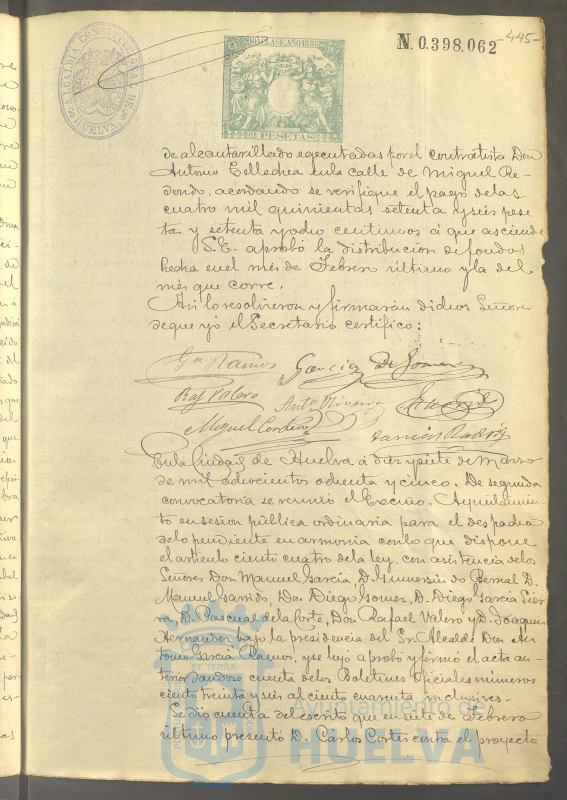 N. 0.398.062
-445-
ALCALDIA CONSTITUCIONAL DE HUELVA
10ª CLASE AÑO 1885
2 PESETAS
de alcantarillado egecutadas por el contratista Don
Antonio Tellechea en la calle de Miguel Re-
dondo, acordando se verifique el pago de las
cuatro mil quinientas setenta y seis pese
tas y setenta y ocho centimos á que asciende
S.E. aprobó la distribucion de fondos
hecha en el més de Febrero último y la del
més que corre.
Asi lo resolvieron y firmarán dichos Señores
de que yo el Secretario certifico:
Gª Ramos García D. Gomez
Raf Valero Antº Oliveira
Miguel Cordero
En la Ciudad de Huelva á diez y siete de Marzo
de mil ochocientos ochenta y cinco. De segunda
convocatoria se reunió el Excmo. Ayuntamien-
to en sesion pública ordinaria para el despacho
de lo pendiente en armonia con lo que dispone
el articulo ciento cuatro de la ley, con asistencia de los
Señores Don Manuel García D. Gumersindo Bernal D.
Manuel Garrido, Don Diego Gomez, D. Diego García Sier
ra D. Pascual de la Corte, Don Rafael Valero y D. Joaquin
Hernandez bajo la presidencia del Sr. Alcalde Don An-
tonio García Ramos, y se leyó aprobó y firmó el acta an-
terior dandose cuenta de los Boletines Oficiales números
ciento treinta y seis al ciento cuarenta inclusives.
Se dio cuenta del escrito que en siete de Febrero
último presentó D. Cárlos Cortés contra el proyecto
Ayuntamiento de
HUELVA